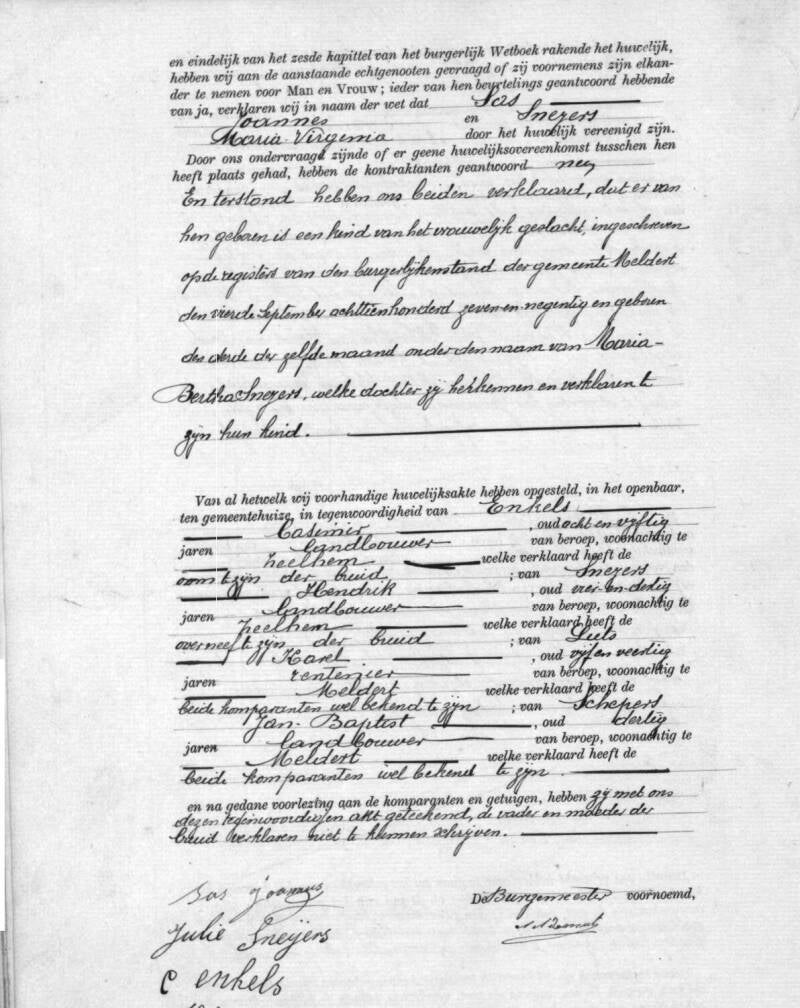 en eindelijk van het zesde kapittel van het burgerlijk Wetboek rakende het huwelijk,
hebben wij aan de aanstaande echtgenooten gevraagd of zij voornemens zijn elkan-
der te nemen voor Man en Vrouw ; ieder van hen beurtelings geantwoord hebbende
van ja, verklaren wij in naam der wet dat Sas
Joannes en Snezers
Maria Virginia door het huwelijk vereenigd zijn.
Door ons ondervraagd zijnde of er geene huwelijksovereenkomst tusschen hen
heeft plaats gehad, hebben de kontraktanten geantwoord neen
En terstond hebben ons beiden verklaard, dat er van
hen geboren is een kind van het vrouwelijk geslacht, ingeschreven
op de registers van den burgerlijkenstand der gemeente Meldert
den vierde September achttienhonderd zeven en negentig en geboren
den derde der zelfde maand onder den naam van Maria-
Bertha Snezers, welke dochter zij herkennen en verklaren te
zijn hun kind.
Van al hetwelk wij voorhandige huwelijksakte hebben opgesteld, in het openbaar,
ten gemeentehuize, in tegenwoordigheid van Enkels
Casimir , oud acht en vijftig
jaren landbouwer van beroep, woonachtig te
Zeelhem welke verklaard heeft de
oom te zijn der bruid ; van Snezers
Hendrik , oud vier en dertig
jaren landbouwer van beroep, woonachtig te
Zeelhem welke verklaard heeft de
overneef te zijn der bruid ; van
Karel , oud vijf en veertig
jaren rentenier van beroep, woonachtig te
Meldert welke verklaard heeft de
beide komparanten wel bekend te zijn ; van Schepers
Jan-Baptist , oud dertig
jaren landbouwer van beroep, woonachtig te
Meldert welke verklaard heeft de
beide komparanten wel bekend te zijn.
en na gedane voorlezing aan de komparanten en getuigen, hebben zij met ons
dezen tegenwoordigen akt geteekend, de vader en moeder der
bruid verklaren niet te kunnen schrijven.
Sas Joannus
De Burgemeester voornoemd,
Julie Sneijers
C enkels